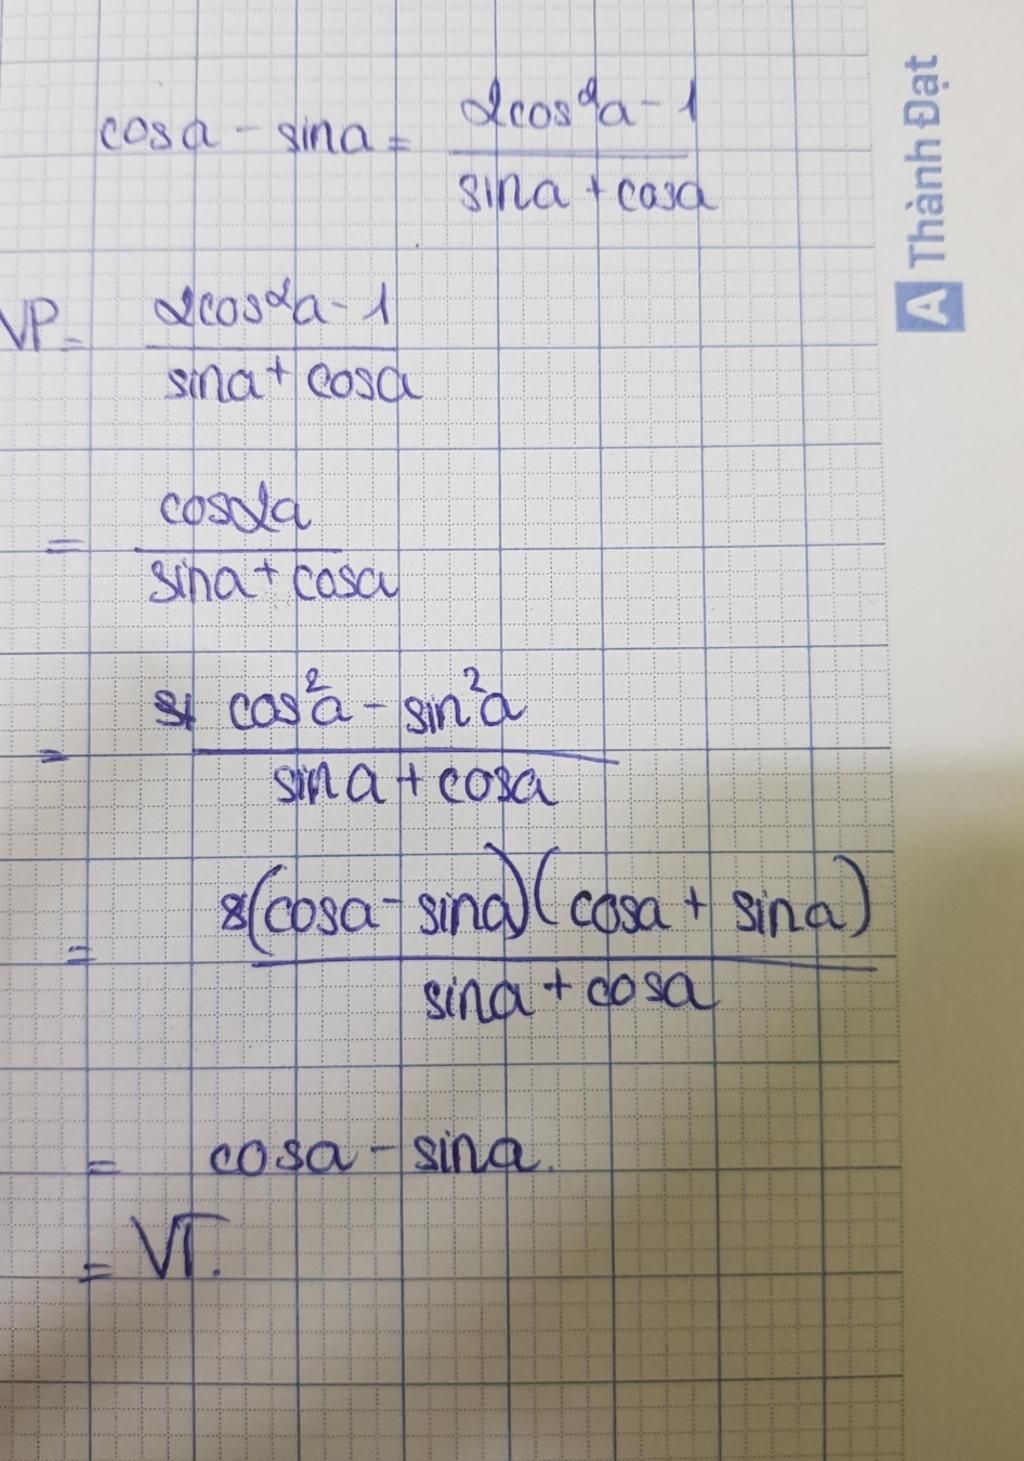 cosa - sina = (2cos²a - 1)/(sina + cosa)
VP = (2cos²a - 1)/(sina + cosa)
= cos2a/(sina + cosa)
= (cos²a - sin²a)/(sina + cosa)
= (cosa - sina)(cosa + sina)/(sina + cosa)
= cosa - sina.
= VT.
A Thành Đạt